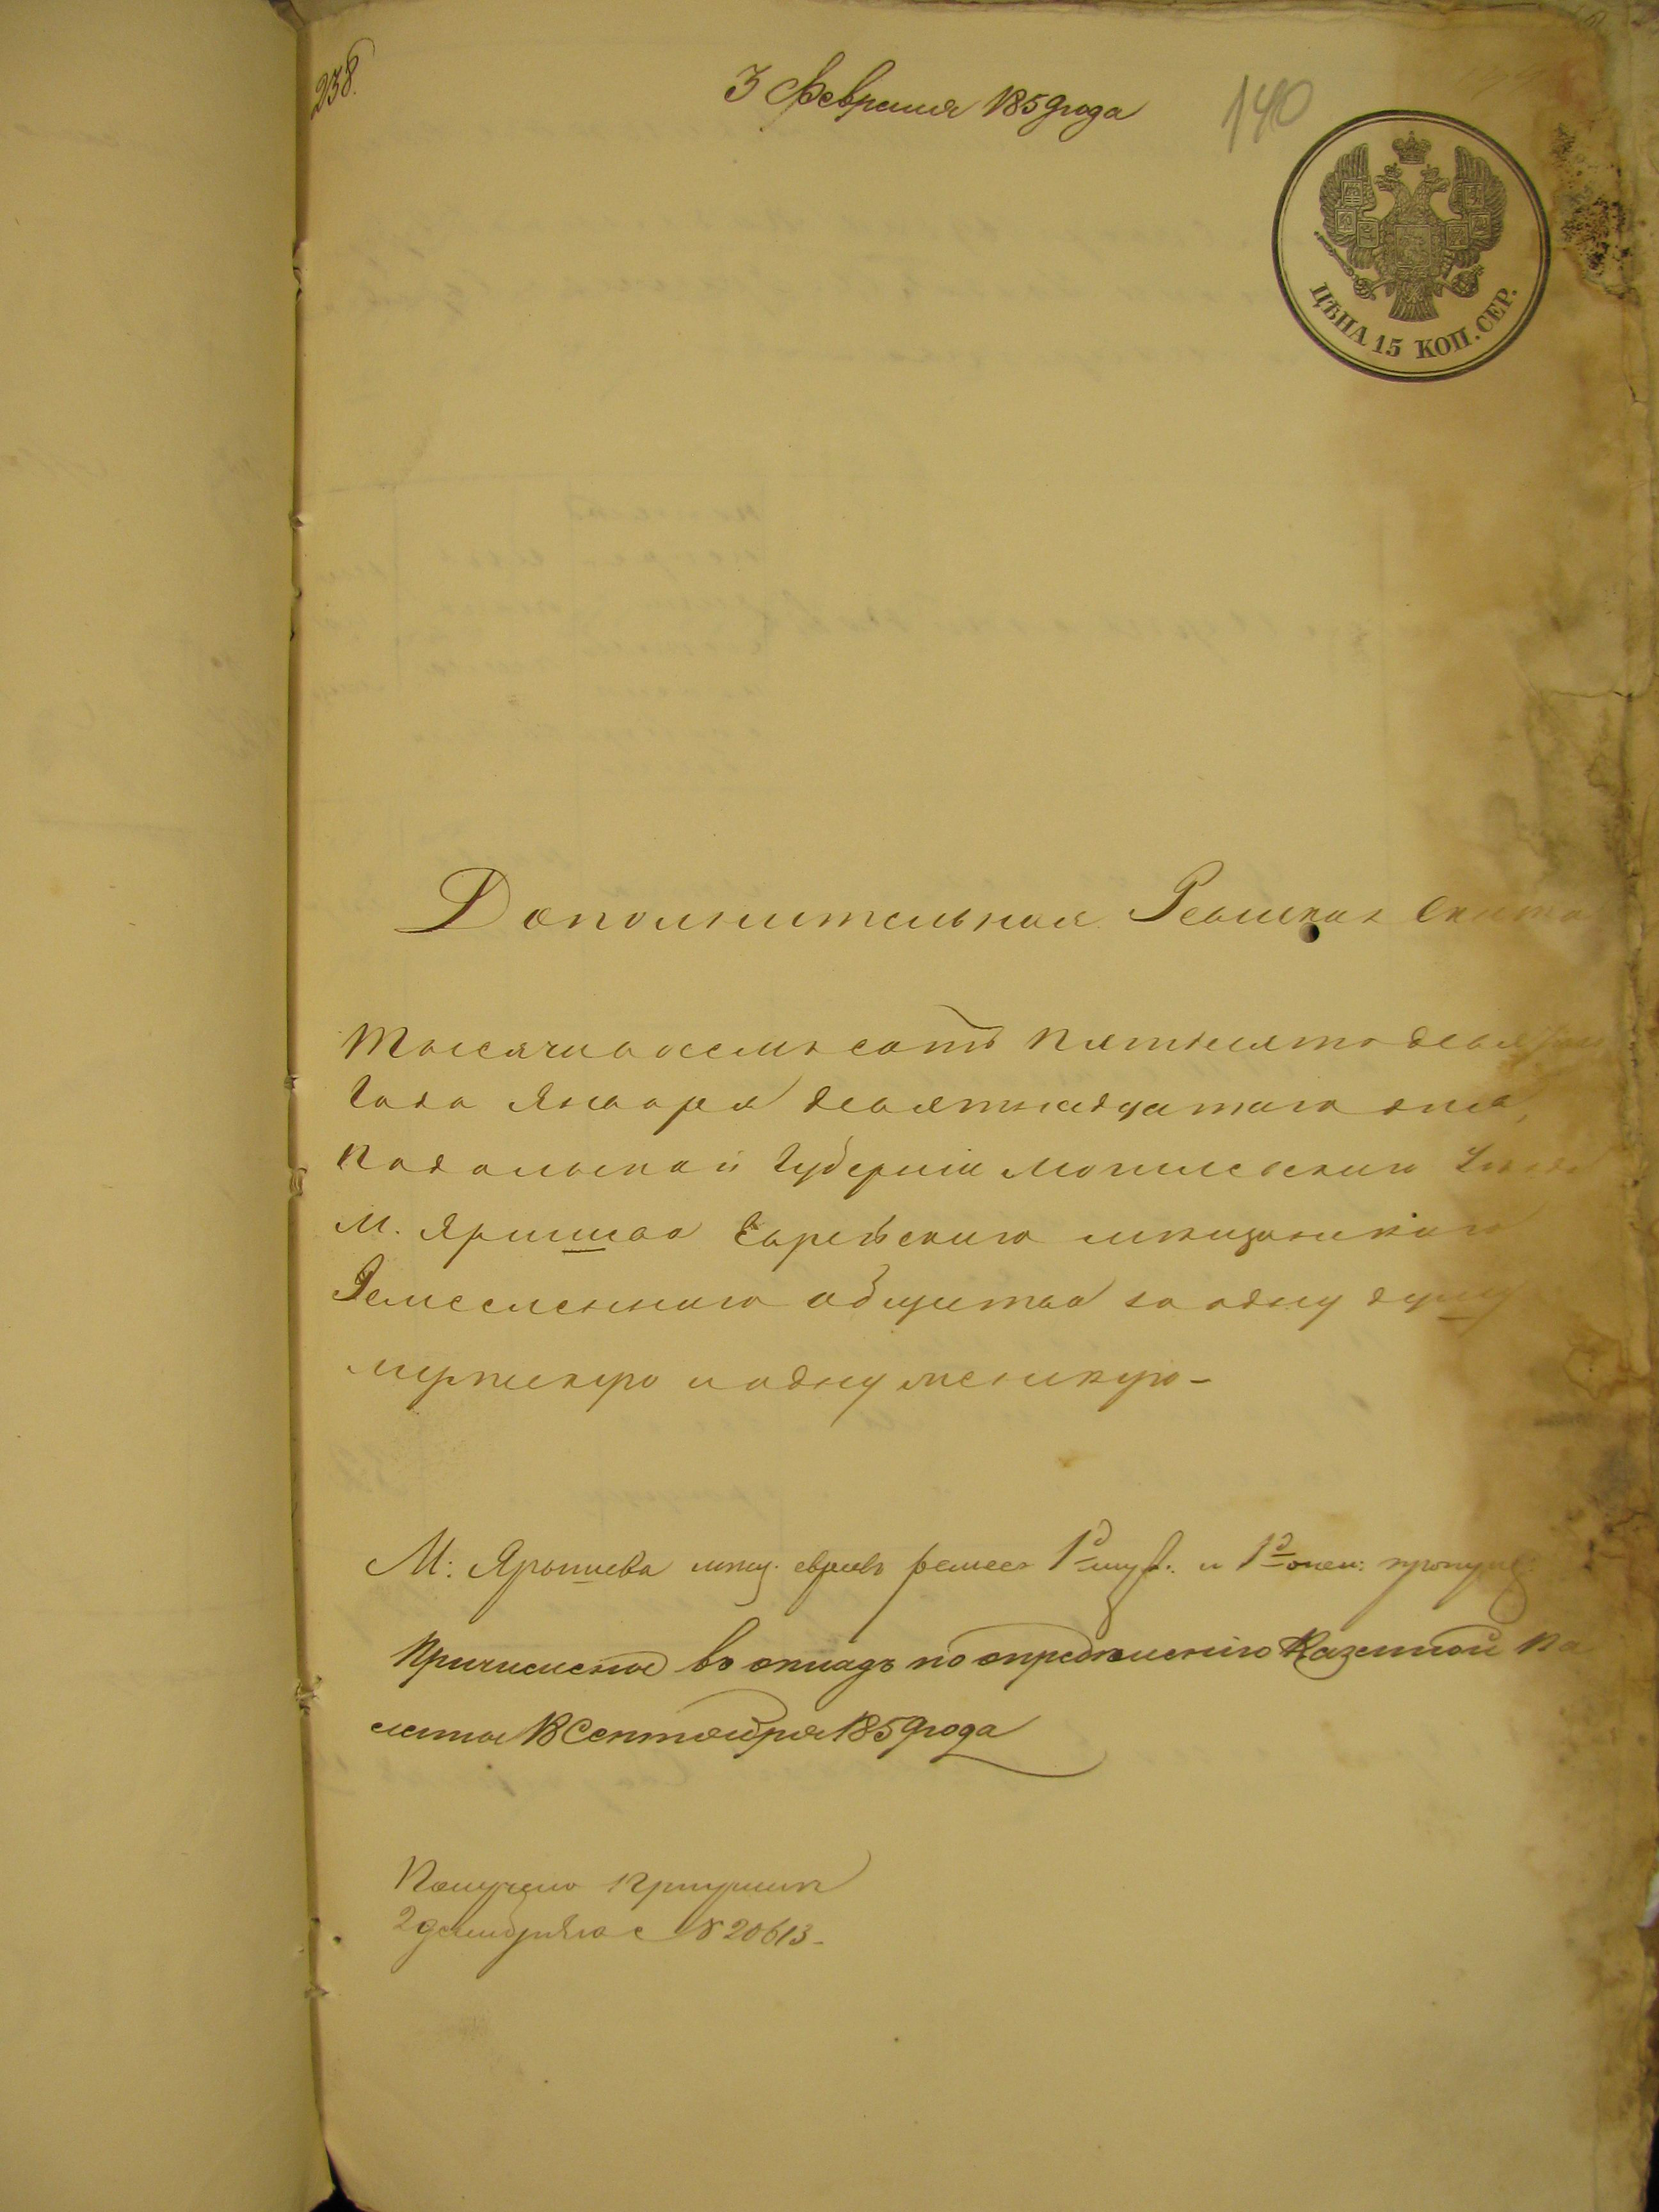 238.
3 Февраля 1859 года
140
ЦѢНА 15 КОП. СЕР.
Дополнительная Ревизкая Сказка
Тысяча восемь сотъ пятьдесятъ девятаго
Года Января девятнадцатаго дня,
Подольской Губерніи Могилевскаго Уѣзда
М. Яришева Еврейскаго мѣщанскаго
Ремесленнаго общества за одну душу
мужскую и одну женскую –
М: Ярышева мѣщ. евреевъ ремес. 1 муж: и 1 жен:
Причислены въ окладъ по опредѣленію Казенной Па
латы 18 Сентября 1859 года
2 декабря с № 20613 –